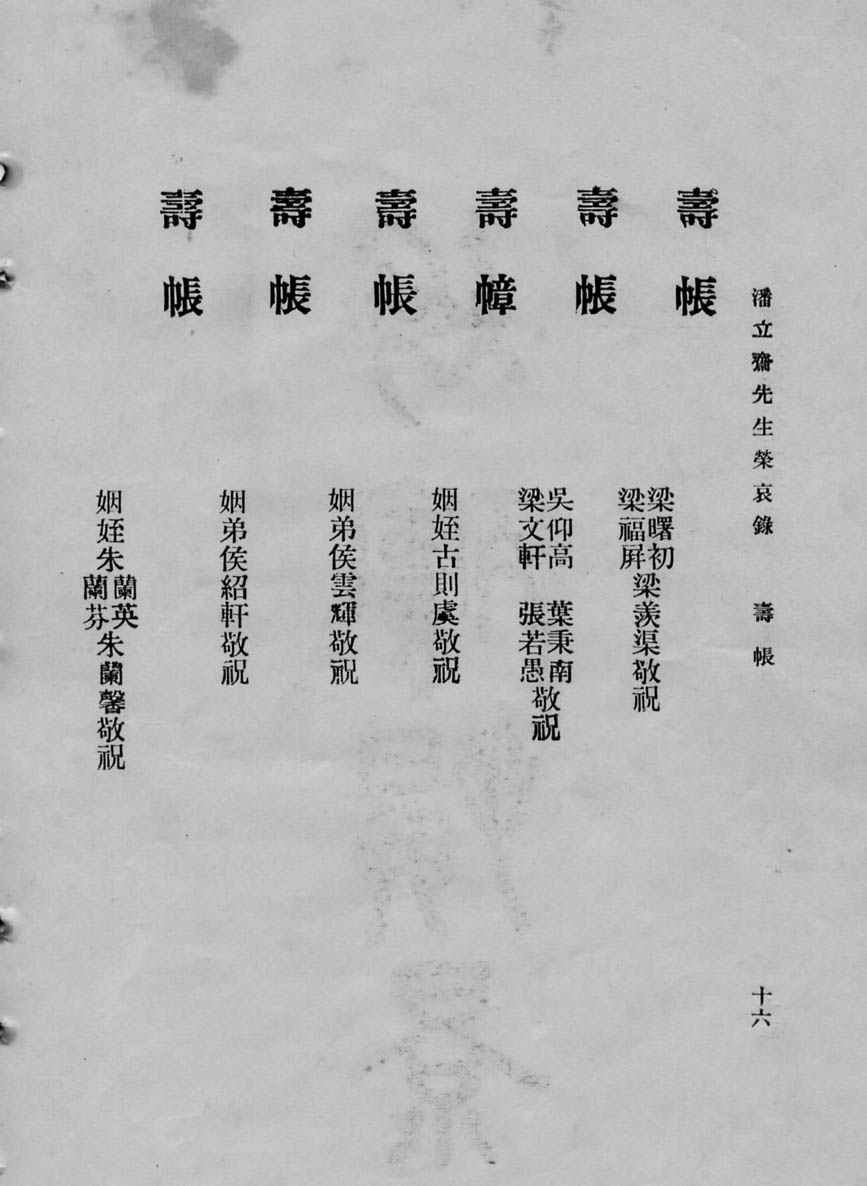 潘立齋先生榮哀錄　壽帳　十六
壽帳
梁曙初
梁福屏
梁羨渠敬祝
壽帳
吳仰高　葉秉南
梁文軒　張若愚
敬祝
壽幛
姻姪古則虞敬祝
壽帳
姻弟侯雲輝敬祝
壽帳
姻弟侯紹軒敬祝
壽帳
姻姪朱
蘭英
蘭芬
朱蘭馨敬祝